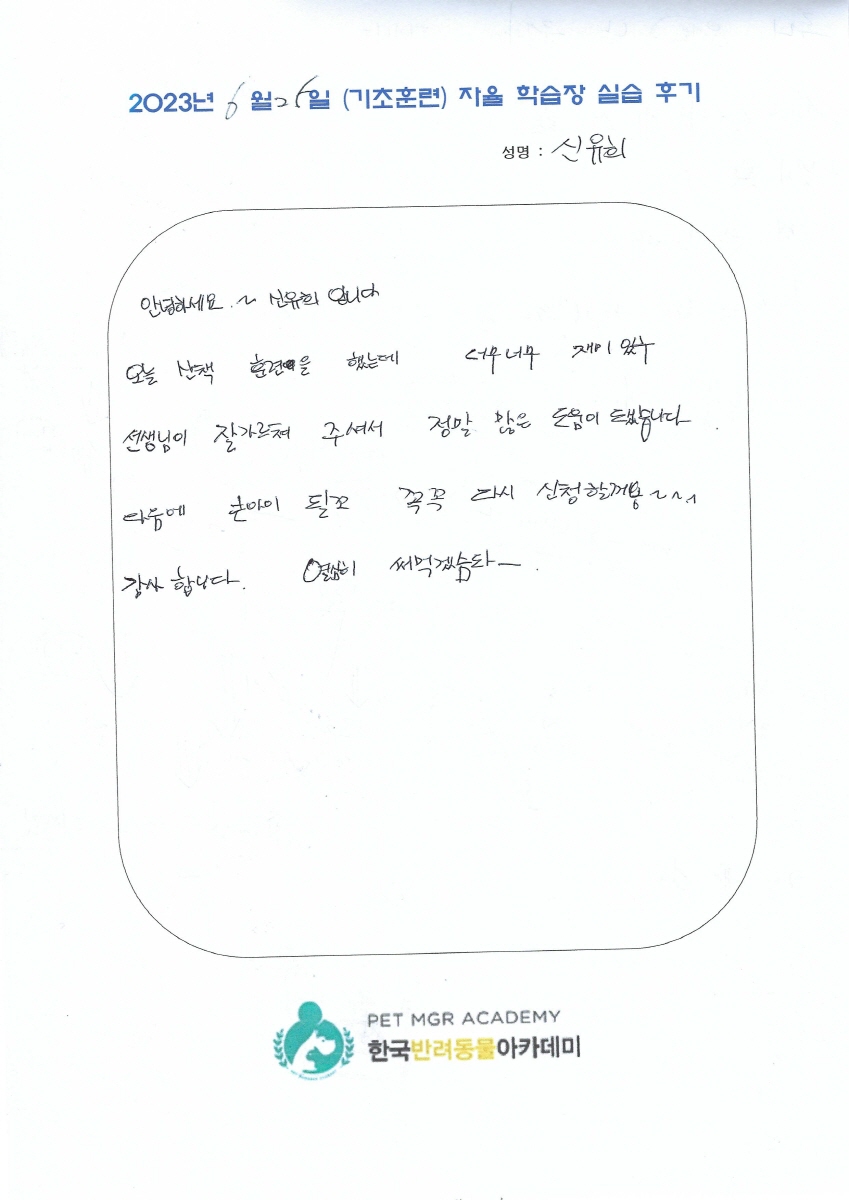 2023년 6월 25일 (기초훈련) 자율 학습장 실습 후기
성명 : 신유희
안녕하세요. ~ 신유희 입니다
오늘 산책 훈련을 했는데 너무너무 재미있구
선생님이 잘가르쳐 주셔서 정말 많은 도움이 됬습니다.
다음에 아이 꼭꼭 다시 신청할께용~~~
감사 합니다. 열심히 써먹겠슴다ㅡ.
PET MGR ACADEMY
한국반려동물아카데미